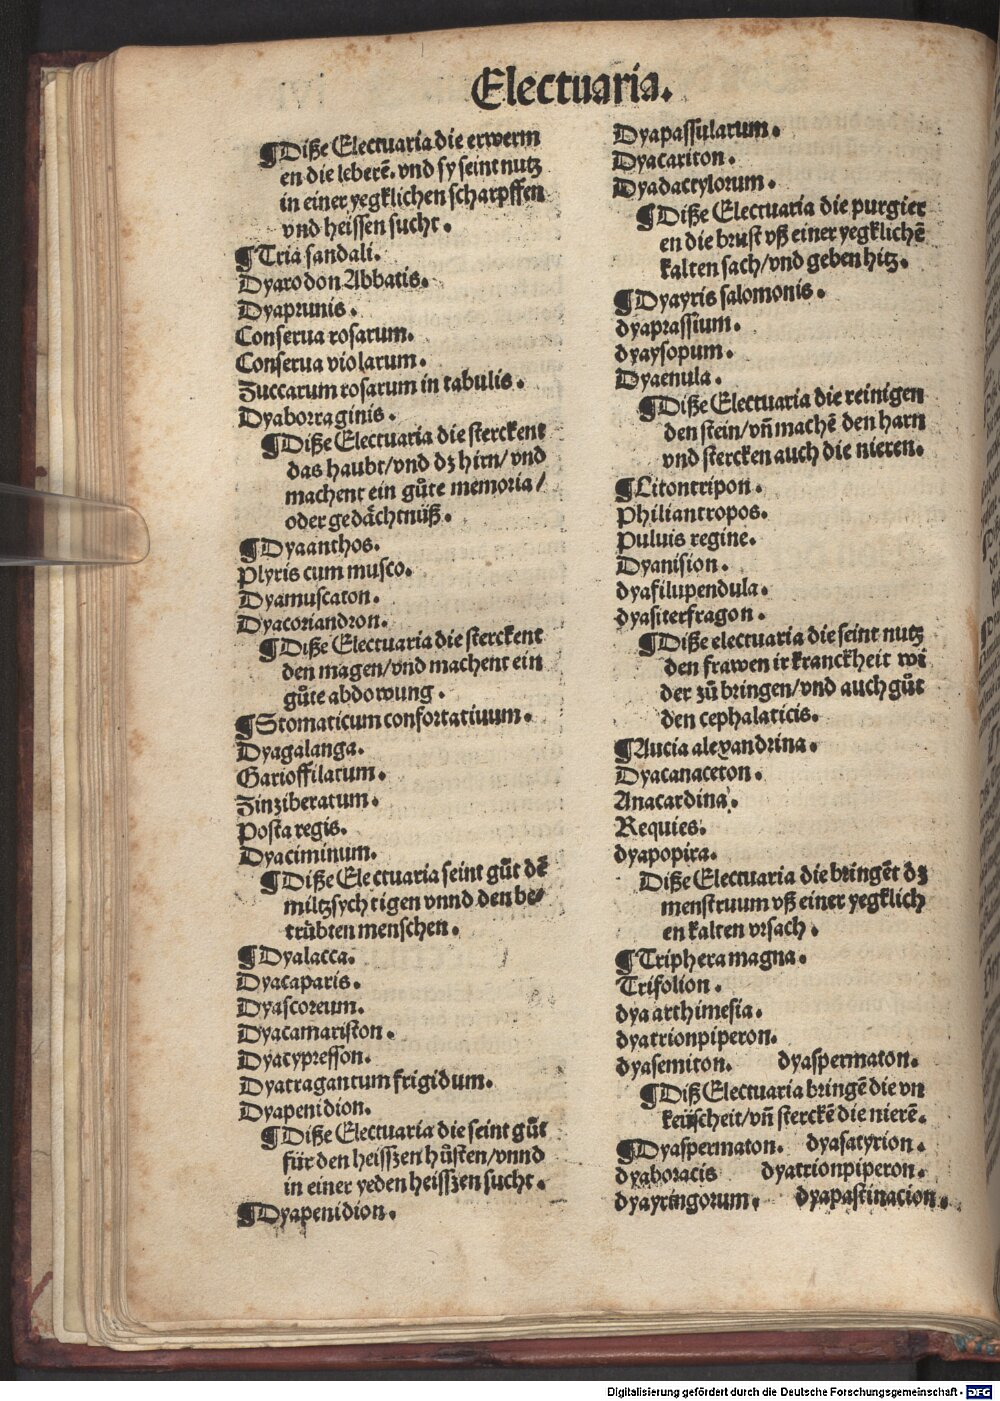 Electuaria.
¶Diße Electuaria die erwerm
en die leberē. vnd sy seint nutz
in einer yegklichen scharpffen
vnd heissen sucht.
¶Tria sandali.
Dyarodon Abbatis.
Dyaprunis.
Conserua rosarum.
Conserua violarum.
Zuccarum rosarum in tabulis.
Dyaborraginis.
¶Diße Electuaria die sterckent
das haubt/vnd dz hirn/vnd
machent ein gůte memoria/
oder gedächtnüß.
¶Dyaanthos.
Plyris cum musco.
Dyamuscaton.
Dyacoriandron.
¶Diße Electuaria die sterckent
den magen/vnd machent ein
gůte abdowung.
¶Stomaticum confortatiuum.
Dyagalanga.
Garioffilatum.
Zinziberatum.
Posta regis.
Dyaciminum.
¶Diße Electuaria seint gůt dē
miltzsychtigen vnnd den be/
trübten menschen.
¶Dyalacca.
Dyacaparis.
Dyascoreum.
Dyacamariston.
Dyacypresson.
Dyatragantum frigidum.
Dyapenidion.
¶Diße Electuaria die seint gůt
für den heisszen hůsten/vnnd
in einer yeden heisszen sucht.
¶Dyapenidion.
Dyapassularum.
Dyacariton.
Dyadactylorum.
¶Diße Electuaria die purgier
en die brust vß einer yegklichē
kalten sach/vnd geben hitz.
¶Dyayris salomonis.
dyaprassium.
dyaysopum.
Dyaenula.
¶Diße Electuaria die reinigen
den stein/vñ machē den harn
vnd stercken auch die nieren.
¶Litontripon.
Philiantropos.
Puluis regine.
Dyanision.
dyafilupendula.
dyasiterfragon.
¶Diße electuaria die seint nutz
den frawen ir kranckheit wi
der zů bringen/vnd auch gůt
den cephalaticis.
¶Aucia alexandrina.
Dyacanaceton.
Anacardina.
Requies.
dyapopira.
Diße Electuaria die bringēt dz
menstruum vß einer yegklich
en kalten vrsach.
¶Triphera magna.
Trifolion.
dya arthimesia.
dyatrionpiperon.
dyasemiton. dyaspermaton.
¶Diß Electuaria bringē die vn
keüscheit/vñ sterckē die nierē.
¶Dyaspermaton. dyasatyrion.
dyaboracis dyatrionpiperon.
dyayringorum. dyapastinacion.
Digitalisierung gefördert durch die Deutsche Forschungsgemeinschaft - DFG